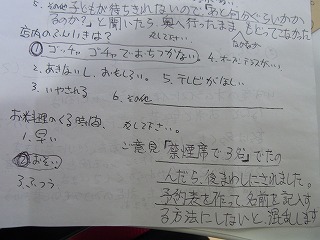 5. 子どもが待ちきれないので「あと何分ぐらいかか
るのか?」と聞いたら、奥へ行ったまま もどってこなかった
店内のふんいきは? 足して下さい。
① ゴッチャ ゴチャで おちつかない。 4. オーケストラがいい。
2. あきないし、おもしろい。 5. テレビがほしい
3. いやされる 6.
お料理のくる時間、 足して下さい。
1. 早い
② おそい
3. ふつう
ご意見「禁煙席で3名」でたの
んだら、後まわしにされました。
予約表を作って名前を記入す
る方法にしないと、混乱します